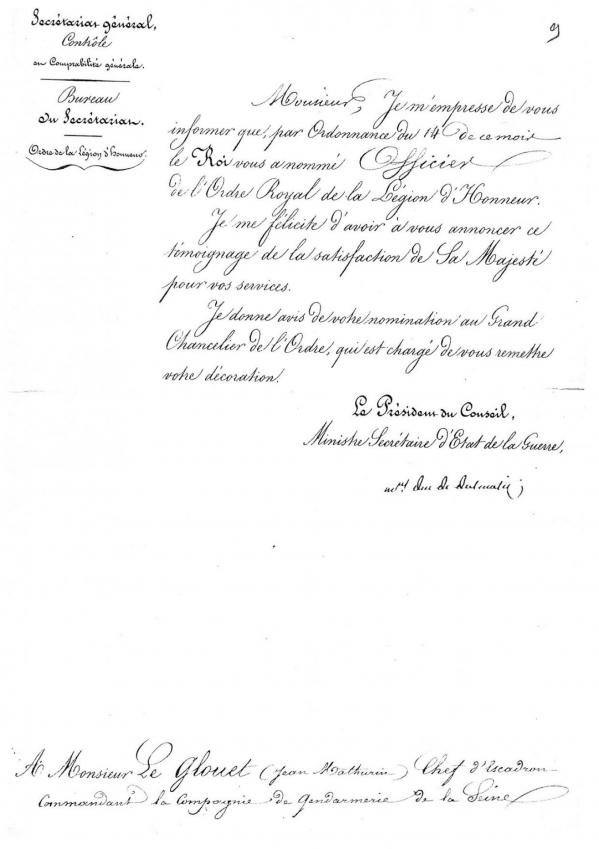 Secrétariat général,
Contrôle
en Comptabilité générale.
Bureau
du Secrétariat.
Ordre de la Légion d'honneur.
9
Monsieur, Je m'empresse de vous
informer que, par Ordonnance du 14 de ce mois
le Roi vous a nommé Officier
de l'Ordre Royal de la Légion d'Honneur.
Je me félicite d'avoir à vous annoncer ce
témoignage de la satisfaction de Sa Majesté
pour vos services.
Je donne avis de votre nomination au Grand
Chancelier de l'Ordre, qui est chargé de vous remettre
votre décoration.
Le Président du Conseil,
Ministre Secrétaire d'Etat de la Guerre,
Mal Duc de Dalmatie
A Monsieur Le Glouet (Jean Mathurin) Chef d'Escadron
Commandant la Compagnie de Gendarmerie de la Seine